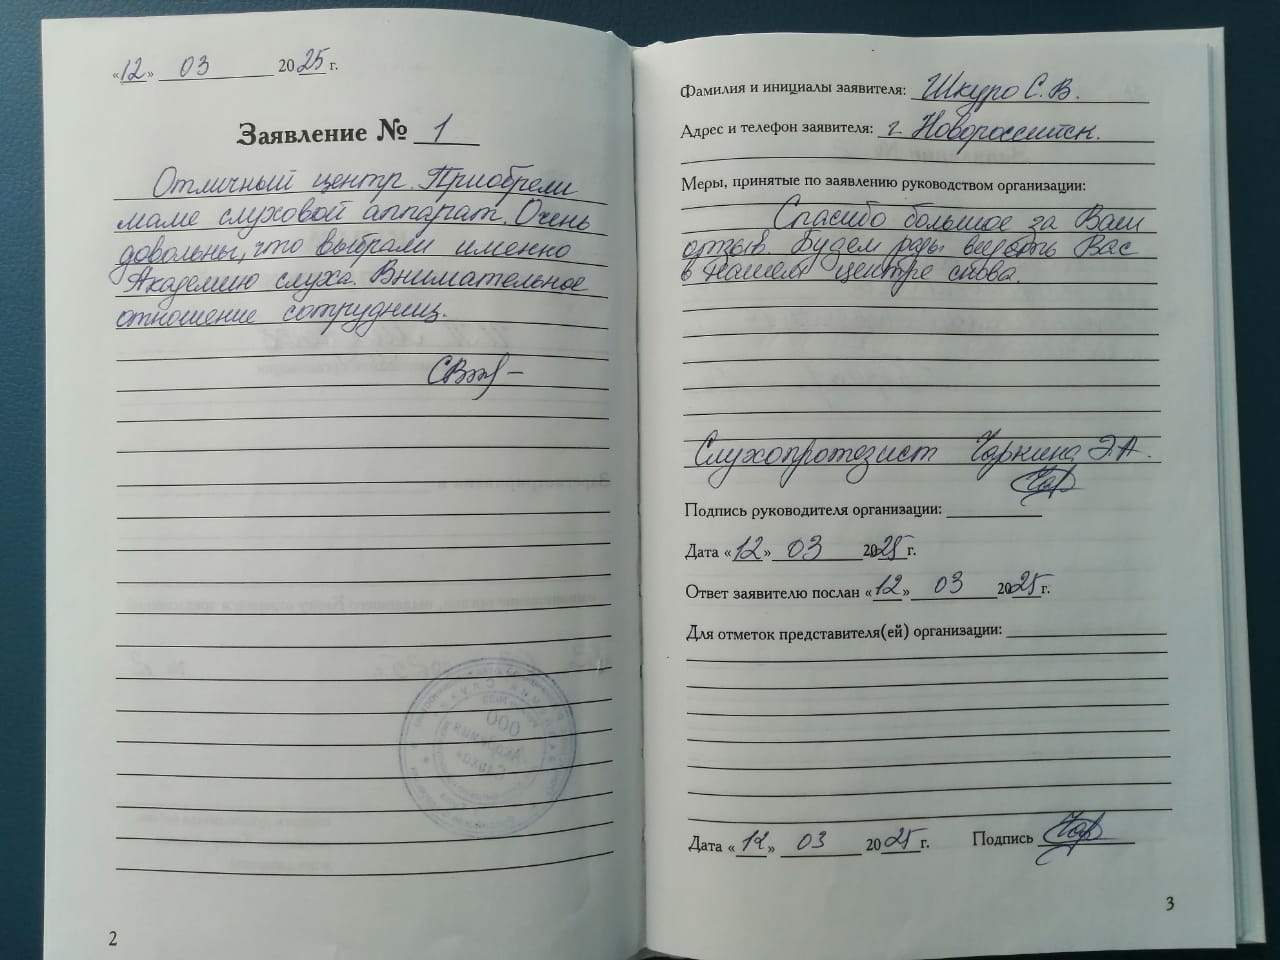 «12» 03 2025 г.
Заявление № 1
Отличный центр. Приобрели
маме слуховой аппарат. Очень
довольны, что выбрали именно
Академию слуха. Внимательное
отношение сотрудниц.
2
Фамилия и инициалы заявителя: Шкуро С.В.
Адрес и телефон заявителя: г. Новороссийск.
Меры, принятые по заявлению руководством организации:
Спасибо большое за Ваш
отзыв. Будем рады видеть Вас
в нашем центре снова.
Слухопротезист Чарнина Э.А.
Подпись руководителя организации:
Дата «12» 03 2025г.
Ответ заявителю послан «12» 03 2025г.
Для отметок представителя(ей) организации:
Дата «12» 03 2025г. Подпись
3
ООО